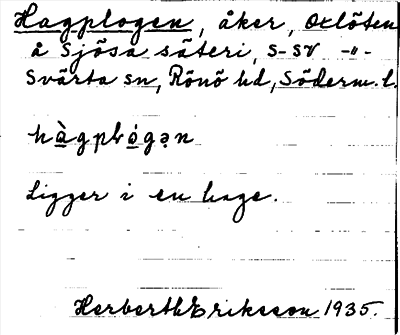 Hagplogen, åker, Oxlöten
å Sjösa säteri, S-SV -"-
Svärta sn, Rönö hd, Söderm. l.
hàgpłógən
Ligger i en hage.
Herberth Eriksson 1935.